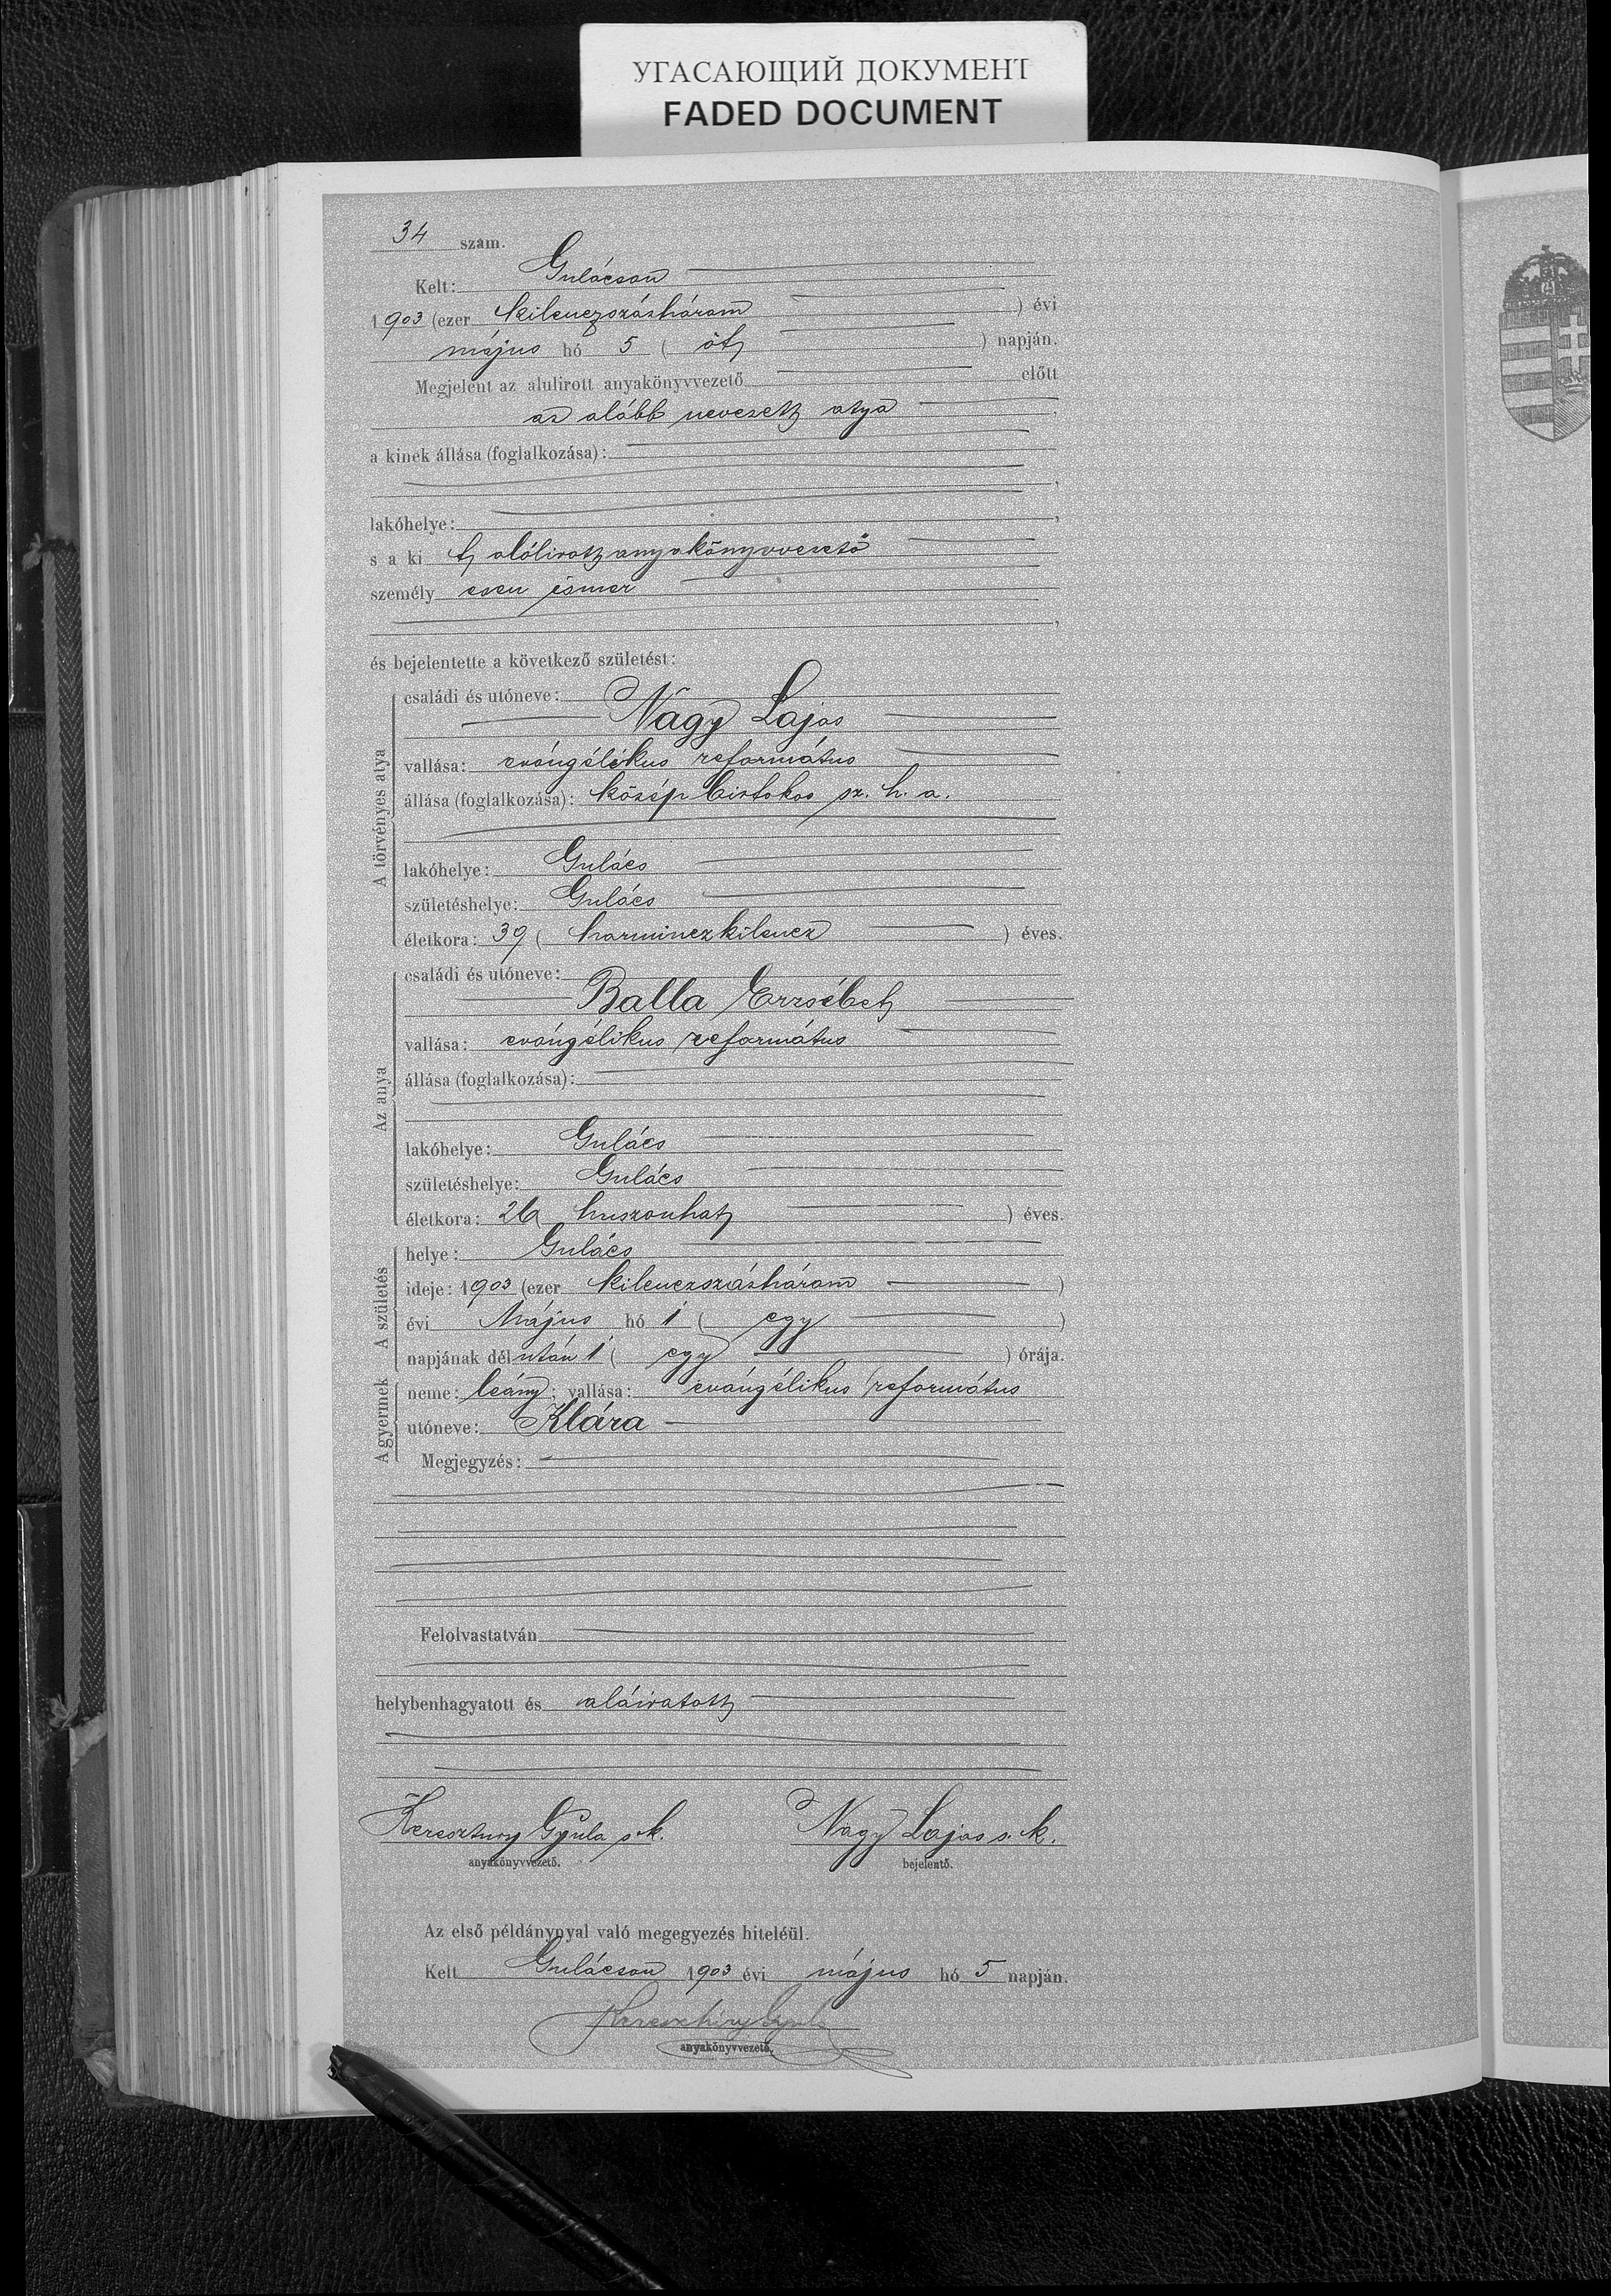 УГАСАЮЩИЙ ДОКУМЕНТ
FADED DOCUMENT
34 szám.
Kelt: Gulácson
1903 (ezer kilenczszázhárom ) évi
május hó 5 ( öt ) napján.
Megjelent az alulirott anyakönyvvezető előtt
az alább nevezett atya ,
a kinek állása (foglalkozása):
,
lakóhelye: ,
s a ki t alólirott anyakönyvvezető
személy esen ismer
,
és bejelentette a következő születést:
A törvényes atya
családi és utóneve:
Nagy Lajos
vallása: evángélikus református
állása (foglalkozása): közép birtokos sz. h. a.
lakóhelye: Gulács
születéshelye: Gulács
életkora: 39 ( harminczkilencz ) éves.
Az anya
családi és utóneve:
Balla Erzsébet
vallása: evángélikus református
állása (foglalkozása):
lakóhelye: Gulács
születéshelye: Gulács
életkora: 26 ( huszonhat ) éves.
A születés
helye: Gulács
ideje: 1903 (ezer kilenczszázhárom )
évi Május hó 1 ( egy )
napjának délután 1 ( egy ) órája.
A gyermek
neme: leány; vallása: evángélikus református
utóneve: Klára
Megjegyzés:
Felolvastatván
helybenhagyatott és aláiratott
Keresztury Gyula s. k. Nagy Lajos s. k.
anyakönyvvezető. bejelentő.
Az első példánynyal való megegyezés hiteléül.
Kelt Gulácson 1903 évi május hó 5 napján.
Keresztury Gyula
anyakönyvvezető.